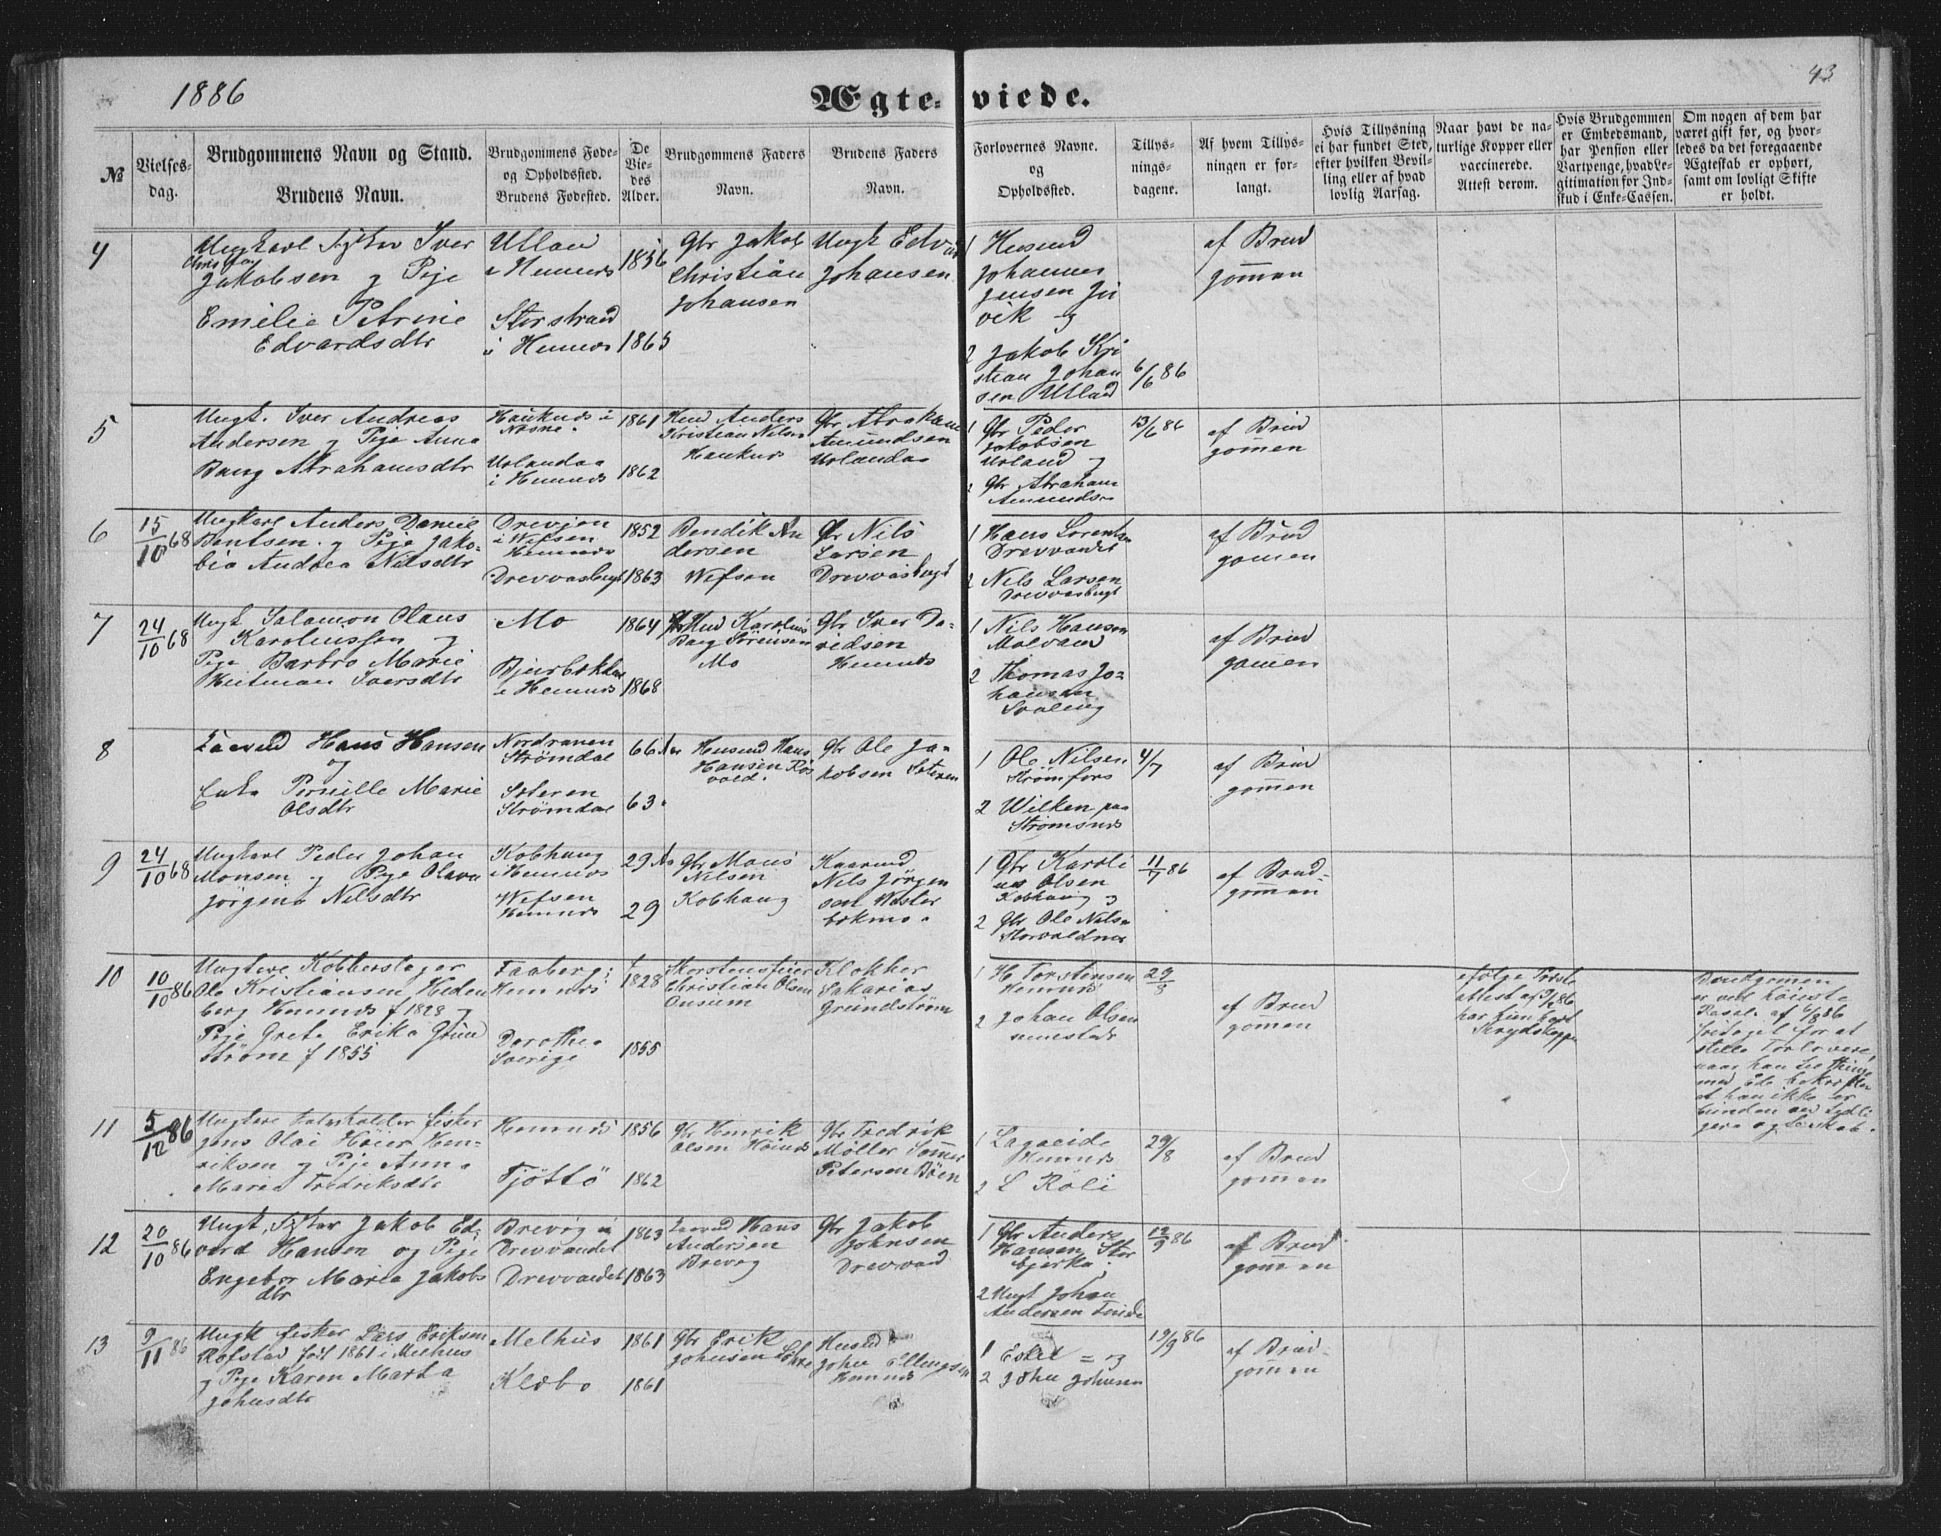 1886
Ægteviede.
43
№
Vielses-
dag.
Brudgommens Navn og Stand.
Brudens Navn.
Brudgommens Føde-
og Opholdssted.
Brudens Fødested.
De
Vie-
des
Alder.
Brudgommens Faders
Navn.
Brudens Faders
Navn.
Forlovernes Navne.
og
Opholdssted.
Tillys-
nings-
dagene.
Af hvem Tillys-
ningen er for-
langt.
Hvis Tillysning
ei har fundet Sted,
efter hvilken Bevil-
ling eller af hvad
lovlig Aarsag.
Naar havt de na-
turlige Kopper eller
vaccinerede.
Attest derom.
Hvis Brudgommen
er Embedsmand,
har Pension eller
Vartpenge, hvad Le-
gitimation for Ind-
skud i Enke-Cassen.
Om nogen af dem har
været gift før, og hvor-
ledes da det foregaaende
Ægteskab er ophørt,
samt om lovligt Skifte
er holdt.
4
Ungkarl Iver
Jakobsen og Pige
Emilie Petrine
Edvardsdtr
i Hemnes
Storstrand
i Hemnes
1856
1865
Gbr Jakob
Christian
Johansen
Johansen
1 Husmd
Johannes
Jensen
vik og
2 Jakob Kri
stian Johan
sen Utland
6/6 86
af Brud
gommen
5
Ungk. Iver Andreas
Andersen og Pige Anna
Bang Abrahamsdtr
i
Næsne
Urlandaa
i Hemnes
1861
1862
Hmd Anders
Kristian Nilsen
Gbr Abraham
Amundsen
Urlandaa
1 Gbr Peder
Jakobsen
Urland og
2 Gbr Abraham
Amundsen
13/6 86
af Brud
gommen
6
15/10 68
Ungkarl Anders Daniel
Bentsen og Pige Jako-
bia Andrea Nilsdtr
Drevjen
i Wefsen
Hemnes
Drevvasbygt
1852
1863
Bendik An
dersen
Wefsen
Gbr Nils
Larsen
Drevvasbygt
1 Hans Lorentsen
Drevvandet
2 Nils Larsen
Drevvasbygt
af Brud
gomen
7
24/10 68
Ungk Salamon Olaus
Karoliussen og
Pige Barbro Marie
Heitman Iversdtr
Mo
i Hemnes
1864
1868
Hmd Karolius
Bang Sørensen
Mo
Gbr Iver Da-
vidsen
Hemnes
1 Nils Hansen
Molvand
2 Thomas Jo-
hansen
af Brud
gomen
8
Hans Hansen
og
Enke Pernille Marie
Olsdtr
Nordranen
Strømdal
Sæteren
Strømdal
66 Aar
63
Husmd Hans
Hansen Ros
vold.
Gbr Ole Ja-
kobsen Sæteren
1 Ole Nilsen
Strømfors
2 Wilken paa
Strømsnes
4/7
af Brud
gommen
9
24/10 68
Ungkarl Peder Johan
Monsen og Pige Olava
Jørgena Nilsdtr
Kobhaug
i Hemnes
Wefsen
Hemnes
29 Aar
29
Gbr Mons
Nilsen
Kobhaug
Nils Jørgen
sen
1 Gbr Karoli
us Olsen
Kobhaug og
2 Gbr Ole Nilsen
11/7 86
af Brud-
gommen
10
10/10 86
Ungkarl Kobberslager
Ole Kristiansen Heden
berg Hemnes f 1828 og
Pige Greta Erika Grund
strøm f 1855
Faaberg i
Hemnes
Dorothea
Sverige
1828
1855
Skorstensfeier
Christian Olsen
Klokker
Sakarias
Grundstrøm
1 H Torstensen
Hemnes
2 Johan Olsen
29/8
af Brud
gomen
efølge Præste
attest af
har hun havt
Brudgomen
er ved høieste
Resol. af 6/8 86
fritaget for at
stille Forlovere,
naar han
med Ed bekræfter
at han ikke er
bunden ved tidli
gere Egteskab.
11
5/12 86
Ungkarl fisker
Jens Olai Høier Hen-
riksen og Pige Anna
Maria Fredriksdtr
Hemnes
Tjøttø
1856
1862
Gbr Henrik
Olsen
Gbr Fredrik
Møller
Petersen
1
Hemnes
2 L Røli
29/8
af Brud
gomen
12
20/10 86
Ungk. Jakob Ed-
vard Hansen og Pige
Engebor Maria Jakobs
dtr
Brevig i
Drevvandet
Drevvandet
1863
1863
Hans
Andersen
Brevig
Gbr Jakob
Johnsen
Drevvand
1 Gbr Anders
Hansen Stor
bjerka
2 Ungk Johan
Andersen
12/9 86
af Brud
gommen
13
9/11 86
Ungk fisker Lars Eriksen
Rofstad født 1861 i Melhus
og Pige Karen Marta
Johnsdtr
Melhus
Klæbo
1861
1861
Gbr Erik
Johnsen
Husmd
John Ellingsen
Hemnes
1
2 John Johnsen
19/9 86
af Brud-
gommen